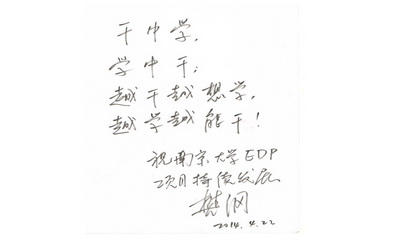 干中学，
学中干；
越干越想学，
越学越能干！
祝南京大学EDP
项目持续发展
樊纲
2014.4.22